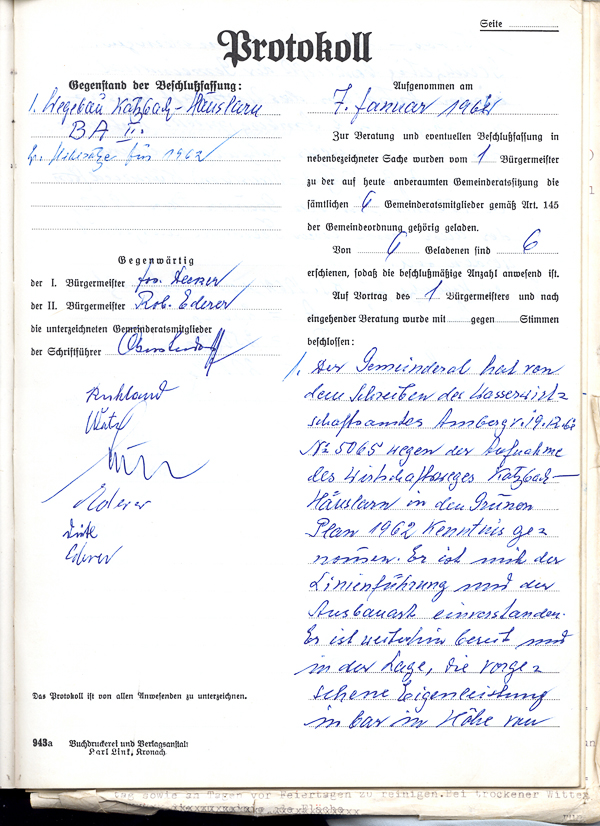 Seite
Protokoll
Gegenstand der Beschlußfassung:
1. Wegebau Katzbach-Häuslarn
BA II.
für 1962
Gegenwärtig
der I. Bürgermeister Jos. Decker
der II. Bürgermeister Rob. Ederer
die unterzeichneten Gemeinderatsmitglieder
der Schriftführer
Ruhland
Ederer
Ederer
Das Protokoll ist von allen Anwesenden zu unterzeichnen.
943a Buchdruckerei und Verlagsanstalt
Karl Link, Kronach
Aufgenommen am
7. Januar 1962
Zur Beratung und eventuellen Beschlußfassung in
nebenbezeichneter Sache wurden vom 1 Bürgermeister
zu der auf heute anberaumten Gemeinderatssitzung die
sämtlichen 6 Gemeinderatsmitglieder gemäß Art. 145
der Gemeindeordnung gehörig geladen.
Von 6 Geladenen sind 6
erschienen, sodaß die beschlußmäßige Anzahl anwesend ist.
Auf Vortrag des 1 Bürgermeisters und nach
eingehender Beratung wurde mit gegen Stimmen
beschlossen:
1. Der Gemeinderat hat von
dem Schreiben des Wasserwirt=
schaftsamtes Amberg v. 19.12.62
Nr 5065 wegen der Aufnahme
des Wirtschaftsweges Katzbach-
Häuslarn in den Grünen
Plan 1962 Kenntnis ge=
nommen. Er ist mit der
Linienführung und der
Ausbauart einverstanden.
Er ist weiterhin bereit und
in der Lage, die vorge=
sehene Eigenleistung
in bar in Höhe von
tag sowie an Tagen vor Feiertagen zu reinigen. Bei trockener